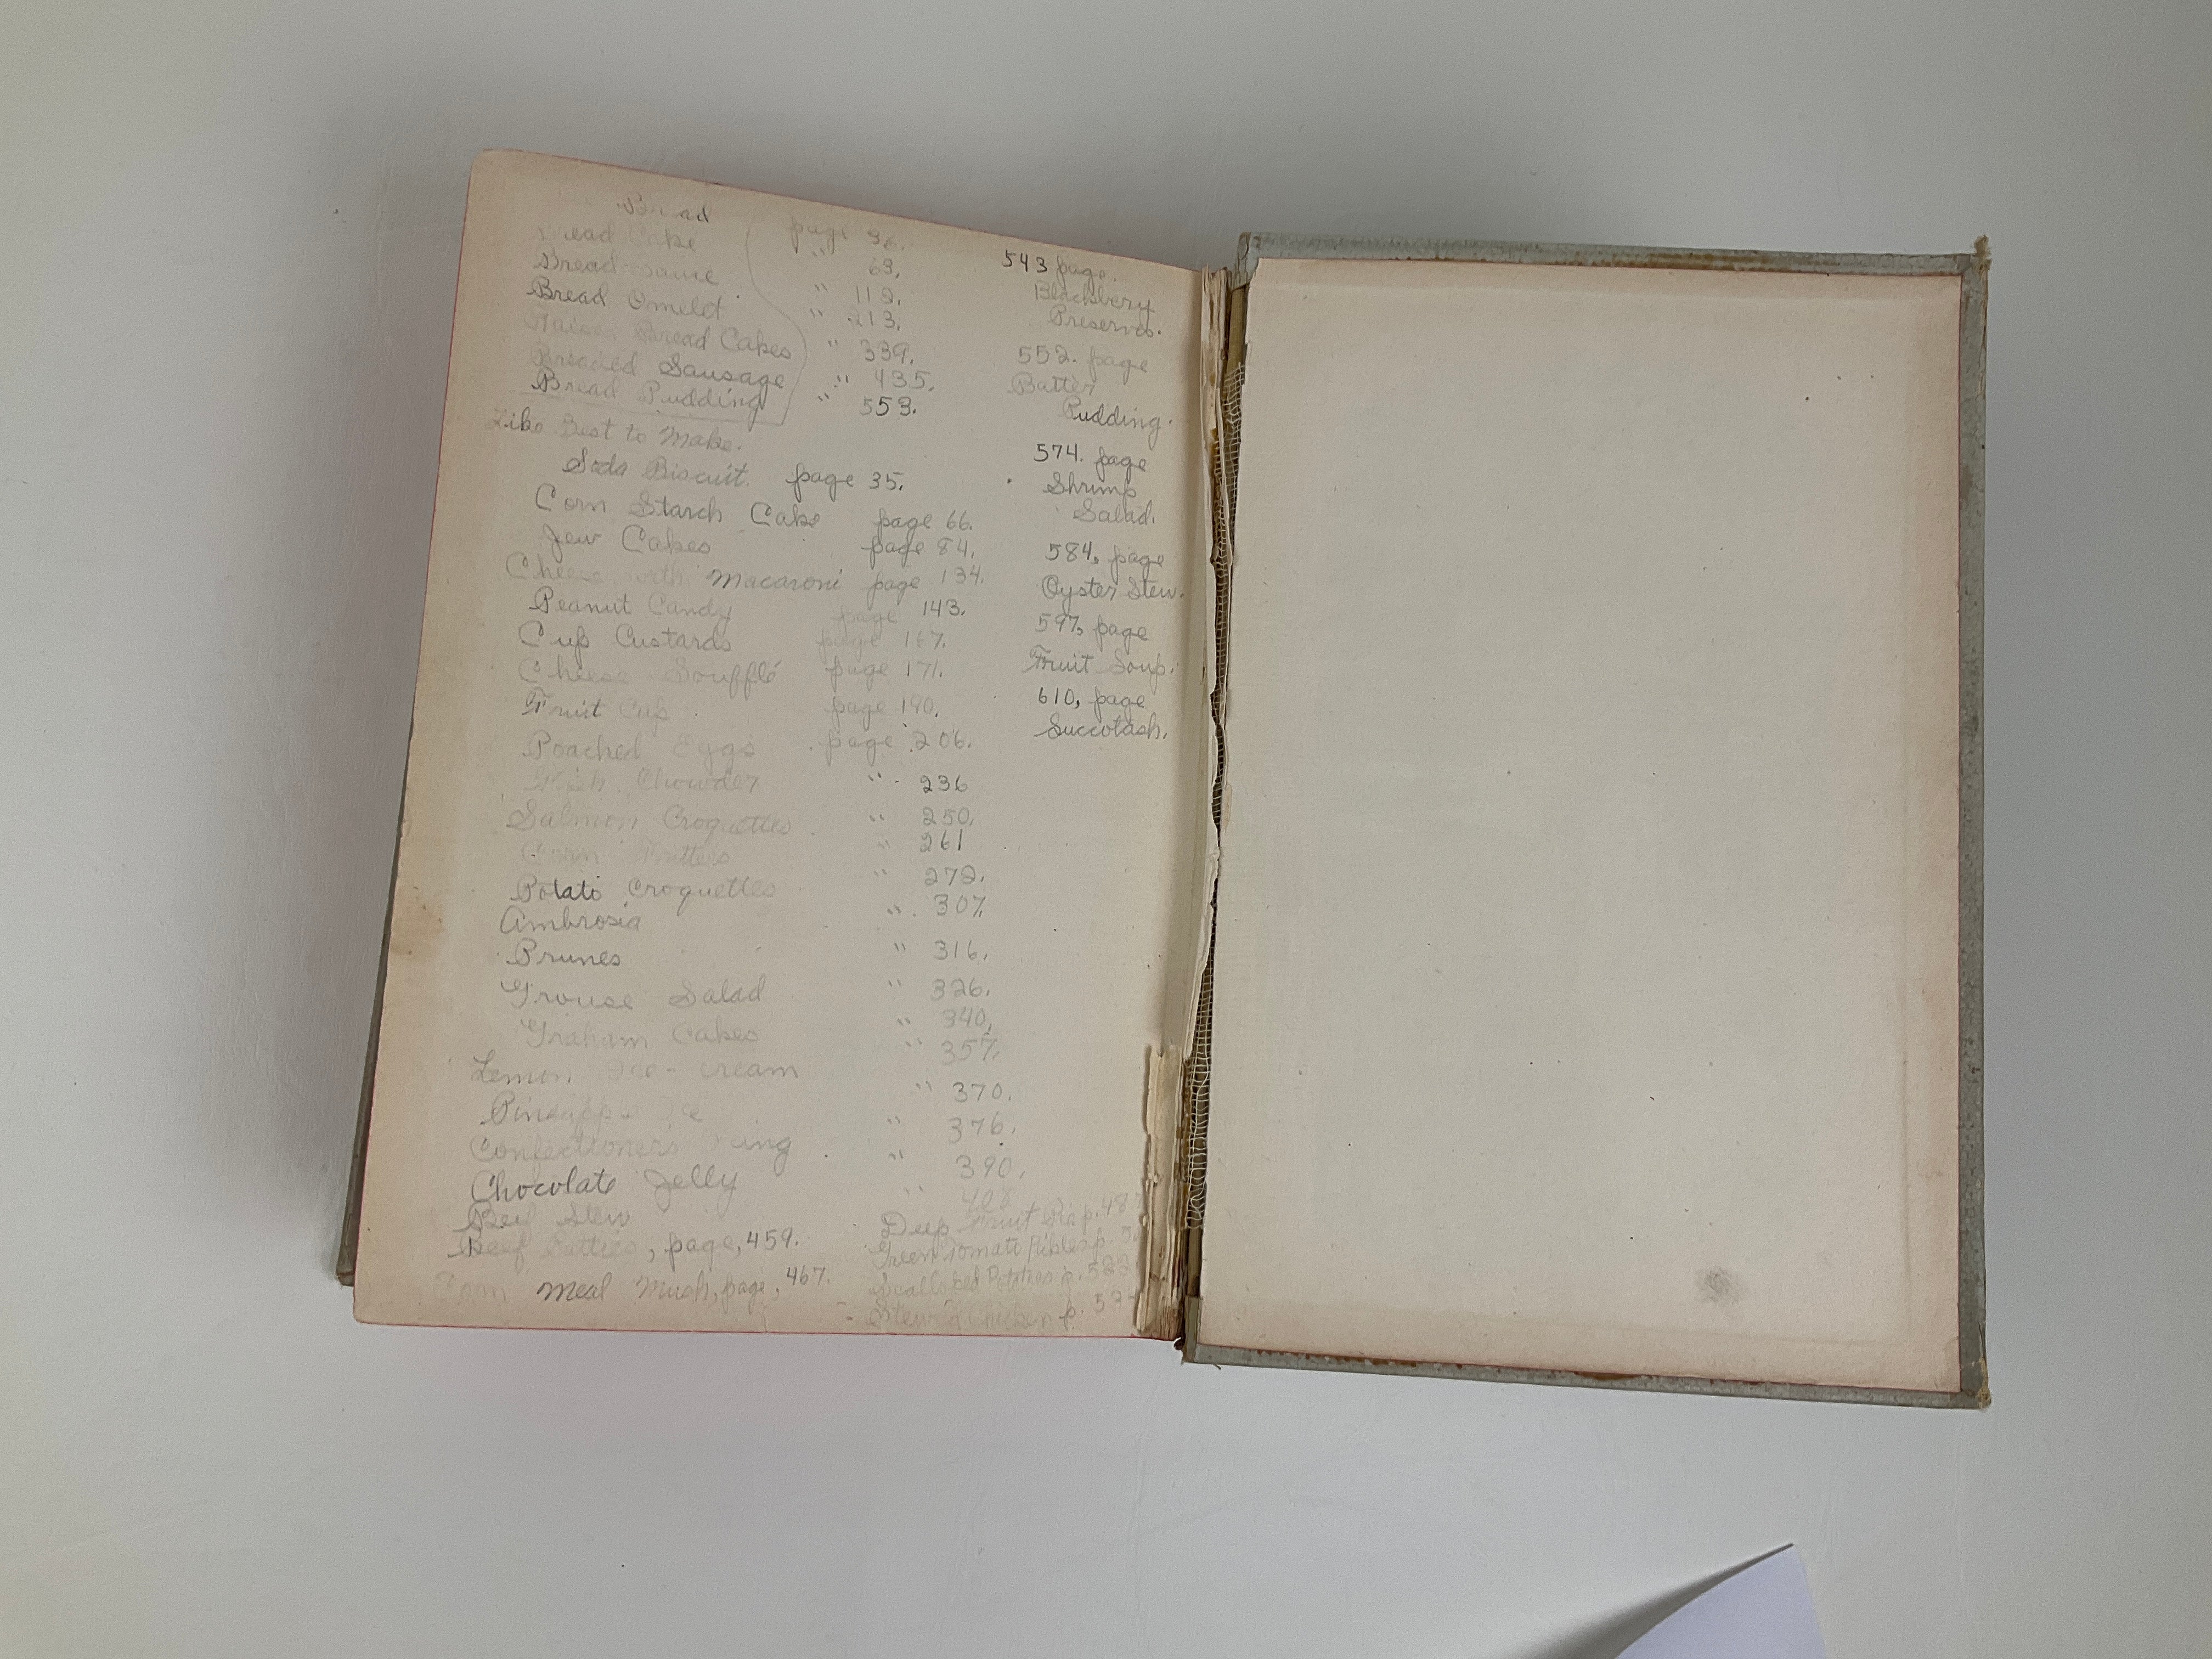 Bread page 36.
Bread Cake " 63.
Bread sauce " 112.
Bread Omelet. " 213.
Bread Cakes " 339.
Breaded Sausage " 435.
Bread Pudding " 553.
Like Best to Make.
Soda Biscuit. page 35.
Corn Starch Cake page 66.
Jew Cakes page 84.
Cheese with Macaroni page 134.
Peanut Candy page 143.
Cup Custards page 167.
Cheese Soufflé page 171.
Fruit Cup page 190.
Poached Eggs page 206.
Fish Chowder " 236
Salmon Croquettes " 250.
Corn Fritters " 261
Potato Croquettes " 272.
Ambrosia " 307.
Prunes " 316.
Grouse Salad " 326.
Graham Cakes " 340.
Lemon Ice-cream " 357.
Pineapple Ice " 370.
Confectioners " 376.
Chocolate Jelly " 390.
Beef Stew " 408
Beef Patties, page, 459.
Corn Meal Mush, page, 467.
Deep Fruit Pie p. 48
Green Tomato Pickles p.
Scalloped Potatoes p. 522
Stewed Chicken p. 53
543 page.
Blackbery
Preserves.
552. page
Batter
Pudding.
574. page
Shrimp
Salad.
584, page
Oyster Stew.
597, page
Fruit Soup.
610, page
Succotash.